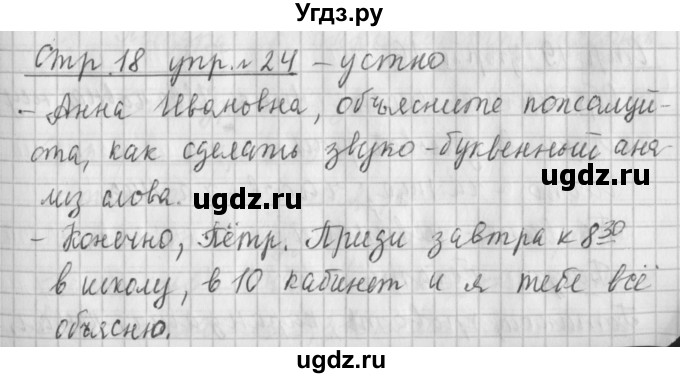 Угдз.ру
Стр. 18 упр. № 24 – устно
– Анна Ивановна, объясните пожалуй-
ста, как сделать звуко-буквенный ана-
лиз слова.
ugdz.ru ugdz.ru
– Конечно, Пётр. Приди завтра к 8 30
в школу, в 10 кабинет и я тебе всё
объясню.
ugdz.ru
ugdz.ru